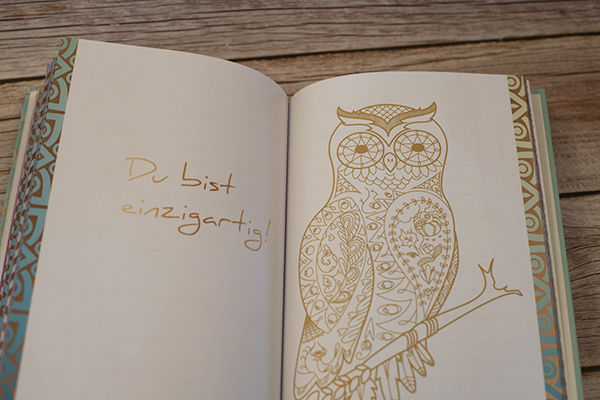 Du bist
einzigartig!